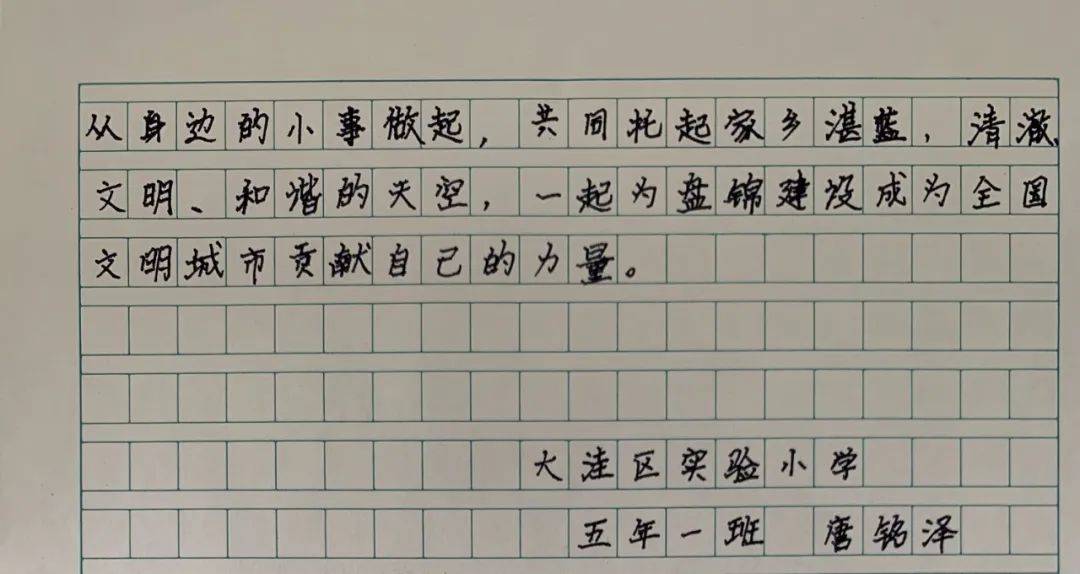 从身边的小事做起，共同托起家乡湛蓝，清澈、
文明、和谐的天空，一起为盘锦建设成为全国
文明城市贡献自己的力量。
大洼区实验小学
五年一班 唐铭泽